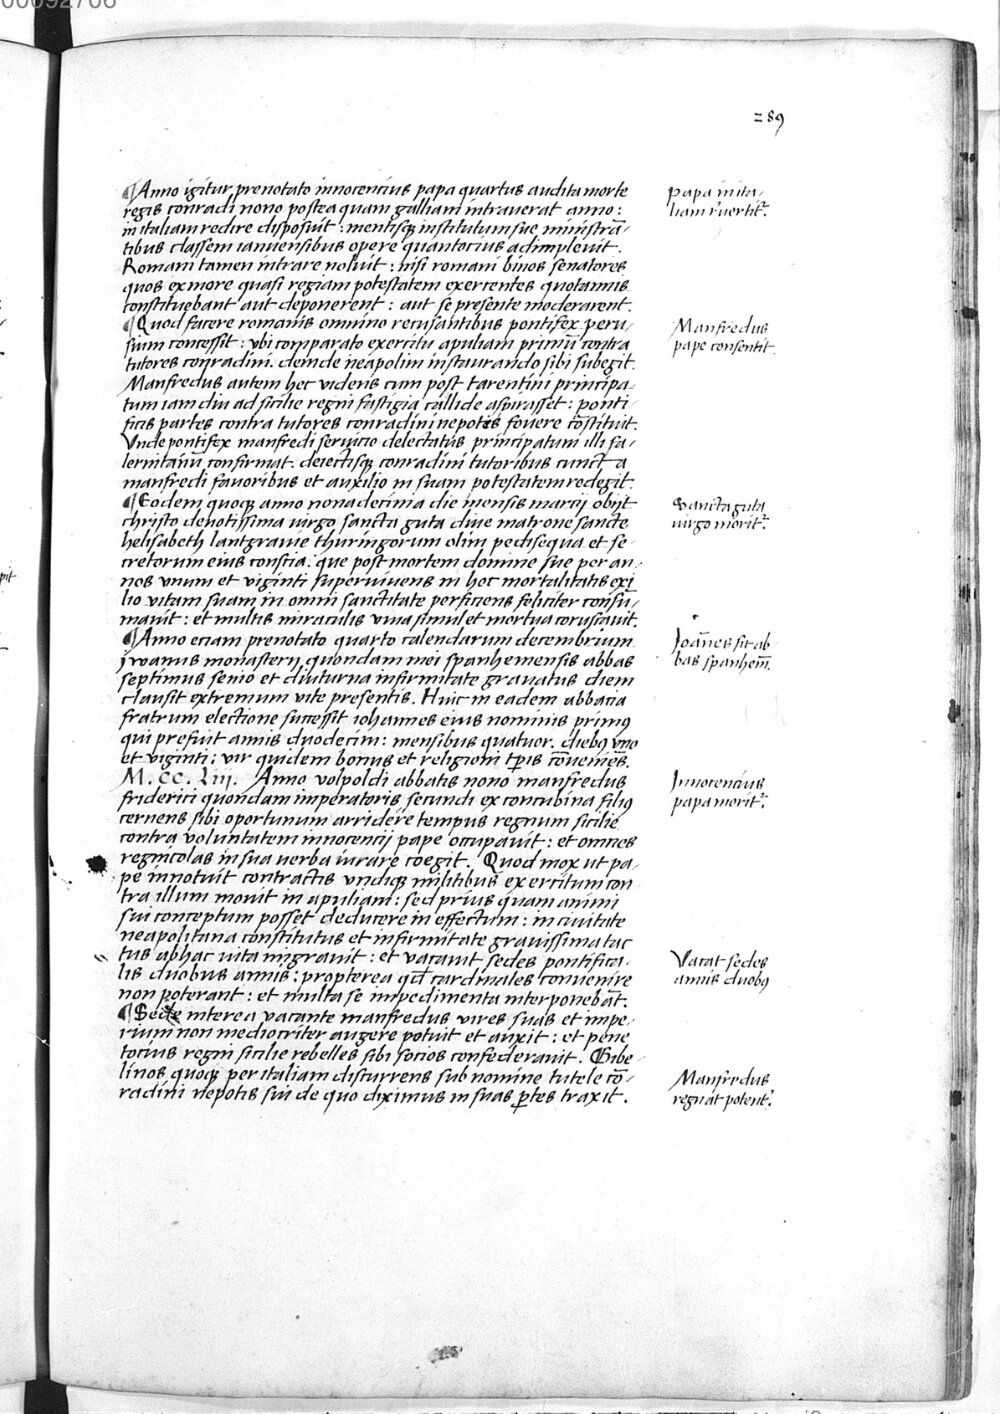 00092706
289
¶Anno igitur prenotato innocencius papa quartus audita morte
regis conradi nono postea quam galliam intrauerat anno:
in italiam redire disposuit: mentisq institutum sue ministrā-
tibus classem ianuensibus opere quantocius adimpleuit.
Romam tamen intrare noluit: nisi romani binos senatores
quos ex more quasi regiam potestatem exercentes quotannis
constituebant aut deponerent: aut se presente moderarent.
papa in ita-
liam reuertitr.
¶Quod facere romanis omnino recusantibus pontifex peru-
sium concessit: vbi comparato exercitu apuliam primū contra
tutores conradini. deinde neapolim instaurando sibi subegit.
Manfredus autem hec videns cum post tarentini principa-
tum iam diu ad sicilie regni fastigia callide aspirasset: ponti-
ficis partes contra tutores conradini nepotes fouere cōstituit.
Vnde pontifex manfredi seruicio delectatus principatum illi sa-
lernitanū confirmat. deiectisq conradini tutoribus cuncta
manfredi fauoribus et auxilio in suam potestatem redegit.
Manfredus
pape consentit.
¶Eodem quoq anno nonadecima die mensis marcij obijt
christo deuotissima virgo sancta guta diue matrone sancte
helisabeth lantgrauie thuringorum olim pedisequa et se-
cretorum eius conscia. que post mortem domine sue per an-
nos vnum et viginti superuiuens in hoc mortalitatis exi
lio vitam suam in omni sanctitate perficiens feliciter consū-
mauit: et multis miraculis viua simul et mortua coruscauit.
Sancta guta
uirgo moritr.
¶Anno eciam prenotato quarto calendarum decembrium
ivoanus monasterij quondam mei spanhemensis abbas
septimus senio et diuturna infirmitate grauatus diem
clausit extremum vite presentis. Huic in eadem abbacia
fratrum electione successit iohannes eius nominis primus
qui prefuit annis duodecim: mensibus quatuor. diebus vno
et viginti: vir quidem bonus et religioni tpis cōueniens.
Joānes fit ab
bas spanhem̄.
M.CC.Liij. Anno volpoldi abbatis nono manfredus
friderici quondam imperatoris secundi ex concubina filius
cernens sibi oportunum arridere tempus regnum sicilie
contra voluntatem innocencij pape occupauit: et omnes
regnicolas in sua verba iurare coegit. Quod mox ut pa-
pe innotuit contractis vndiq militibus exercitum con
tra illum mouit in apuliam: sed prius quam animi
sui conceptum posset deducere in effectum: in ciuitate
neapolitana constitutus et infirmitate grauissima tac
tus ab hac vita migrauit: et vacauit sedes pontifica-
lis duobus annis: propterea qd cardinales conuenire
non poterant: et multa se impedimenta interponebāt.
Innocencius
papa moritr.
Vacat sedes
annis duobus
¶Sede interea vacante manfredus vires suas et impe-
rium non mediocriter augere potuit et auxit: et pene
tocius regni sicilie rebelles sibi socios confederauit. Gibe-
linos quoq per italiam discurrens sub nomine tutele cō-
radini nepotis sui de quo diximus in suas ptes traxit.
Manfredus
regnat potentr.